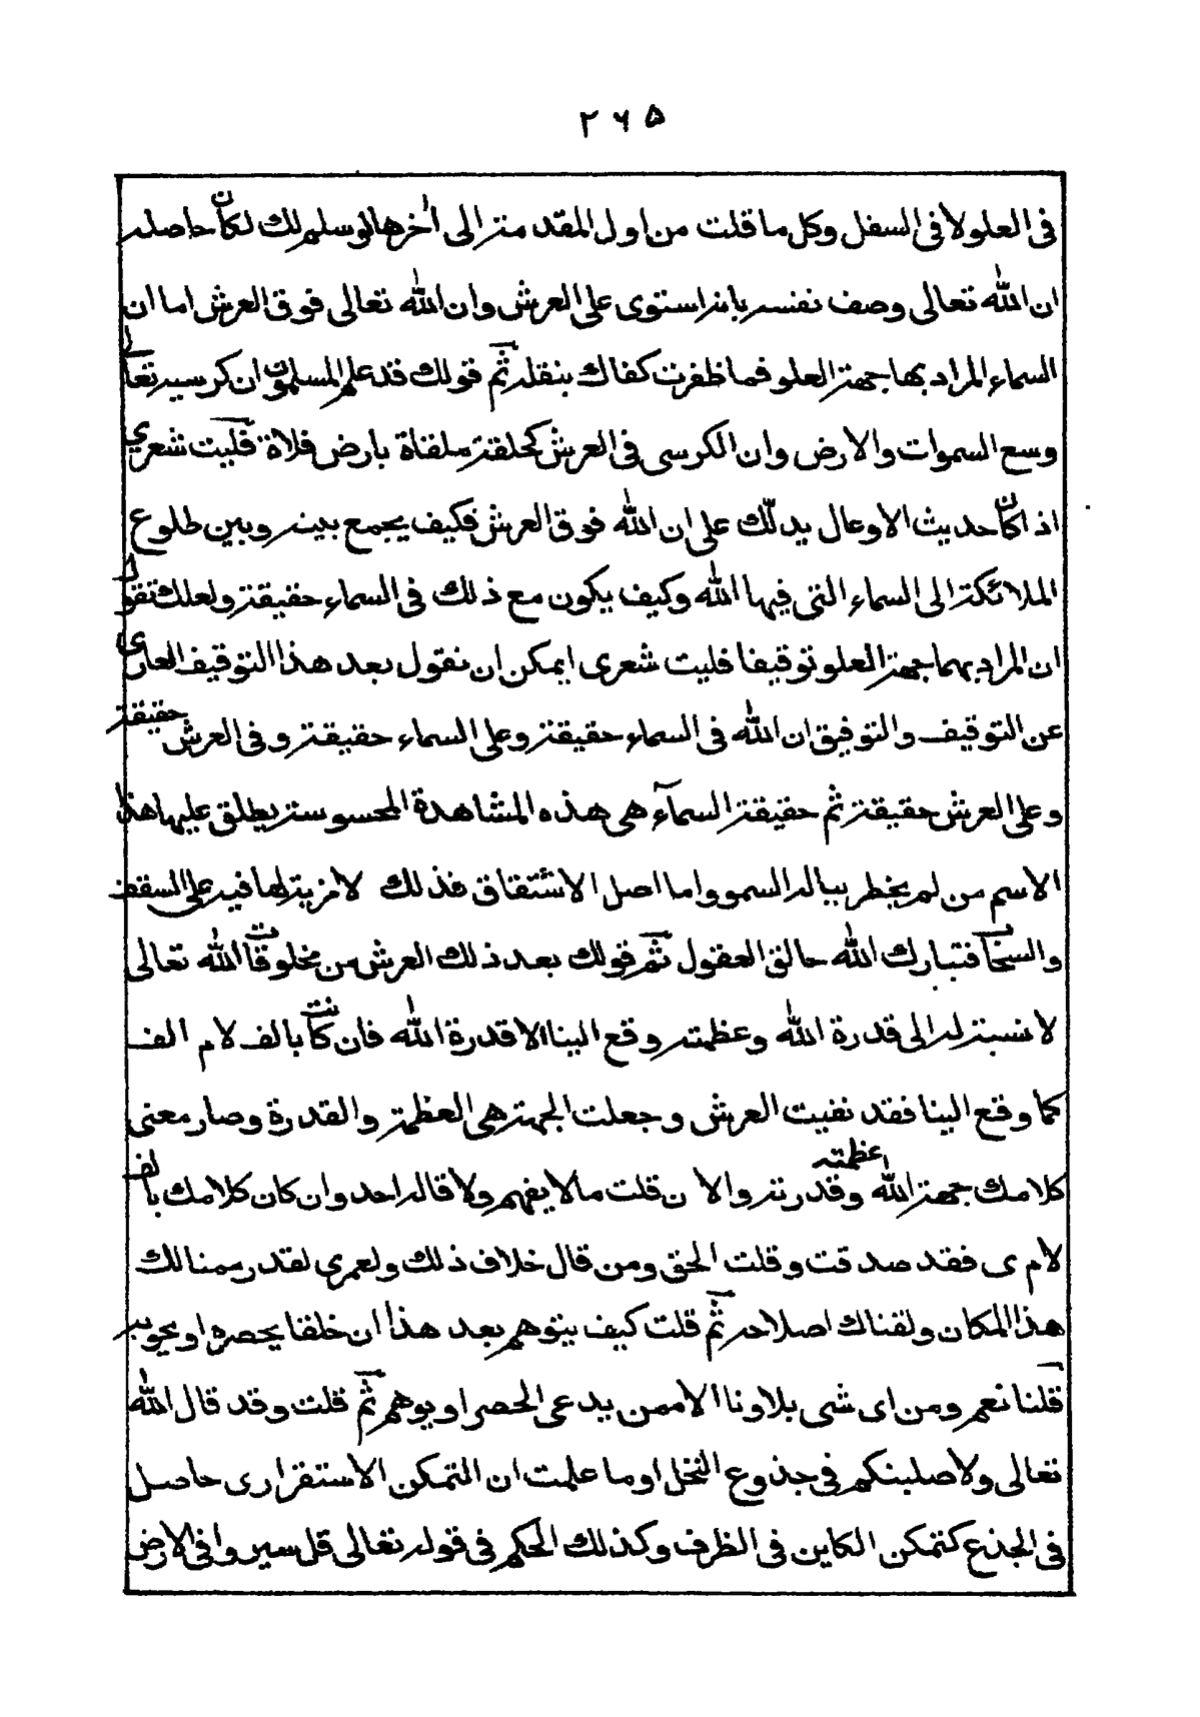 ٢٦٥
فى العلو ولا فى السفل وكل ما قلت من اول المقدمة الى اٰخرها لو سلم لك لكان حاصله
ان الله تعالى وصف نفسه بانه استوى على العرش وان الله تعالى فوق العرش اما ان
السماء المراد بها جهة العلو فما ظفرت كفاك بنقله ثم قولك قد علم المسلمون ان كرسيه تعالى
وسع السموات والارض وان الكرسى فى العرش كحلقة ملقاة بارض فلاة فليت شعري
اذا كان حديث الاوعال يدلّك على ان الله فوق العرش فكيف يجمع بينه وبين طلوع
الملائكة الى السماء التى فيها الله وكيف يكون مع ذلك فى السماء حقيقة ولعلك تقول
ان المراد بهما جهة العلو توقيفا فليت شعرى ايمكن ان نقول بعد هذا التوقيف العارى
عن التوقيف والتوفيق ان الله فى السماء حقيقة وعلى السماء حقيقة وفى العرش حقيقة
وعلى العرش حقيقة ثم حقيقة السمآء هى هذه المشاهدة المحسوسة يطلق عليها هذا
الاسم من لم يخطر بباله السمو واما اصل الاشتقاق فذلك لا مزية لها فيه على السقف
والسحاب فتبارك الله خالق العقول ثم قولك بعد ذلك العرش من مخلوقات الله تعالى
لا نسبة له الى قدرة الله وعظمته وقع الينا الا قدرة الله فان كانت بالف لام الف
كما وقع الينا فقد نفيت العرش وجعلت الجهة هى العظمة والقدرة وصار معنى
كلامك جهة الله عظمته وقدرته والان قلت ما لا يفهم ولا قاله احد وان كان كلامك بالف
لام ى فقد صدقت وقلت الحق ومن قال خلاف ذلك ولعمري لقد رممنا لك
هذا المكان ولقناك اصلاحه ثم قلت كيف يتوهم بعد هذا ان خلقا يحصره او يحويه
قلنا نعم ومن اى شى بلاونا الا ممن يدعى الحصر او يوهم ثم قلت وقد قال الله
تعالى ولاصلبنكم فى جذوع النخل اوما علمت ان التمكن الاستقرارى حاصل
فى الجذع كتمكن الكاين فى الظرف وكذلك الحكم فى قوله تعالى قل سيروا فى الارض